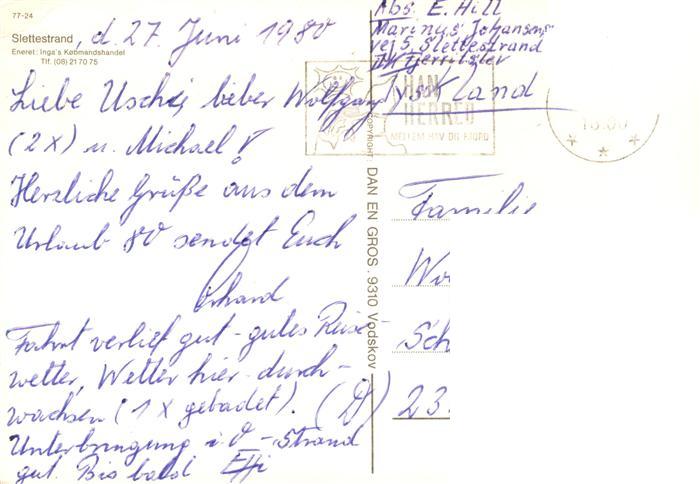 77-24
Slettestrand, d. 27. Juni 1980
Eneret: Inga's Købmandshandel
Tlf. (08) 21 70 75
Liebe Uschi, lieber Wolfgang
(2x) u. Michael!
Herzliche Grüße aus dem
Urlaub 80 sendet Euch
Erhard
Fahrt verlief gut - gutes Reise-
wetter, Wetter hier durch-
wachsen (1 x gebadet).
Unterbringung i. O. - Strand
gut. Bis bald Effi
COPYRIGHT: DAN EN GROS. 9310 Vodskov
Abs. E. Hill
Marinus Johansens
vej 5, Slettestrand
Fjerritslev
HAN
HERRED
MELLEM HAV OG FJORD
Familie
Wo
Sch
(D) 23.